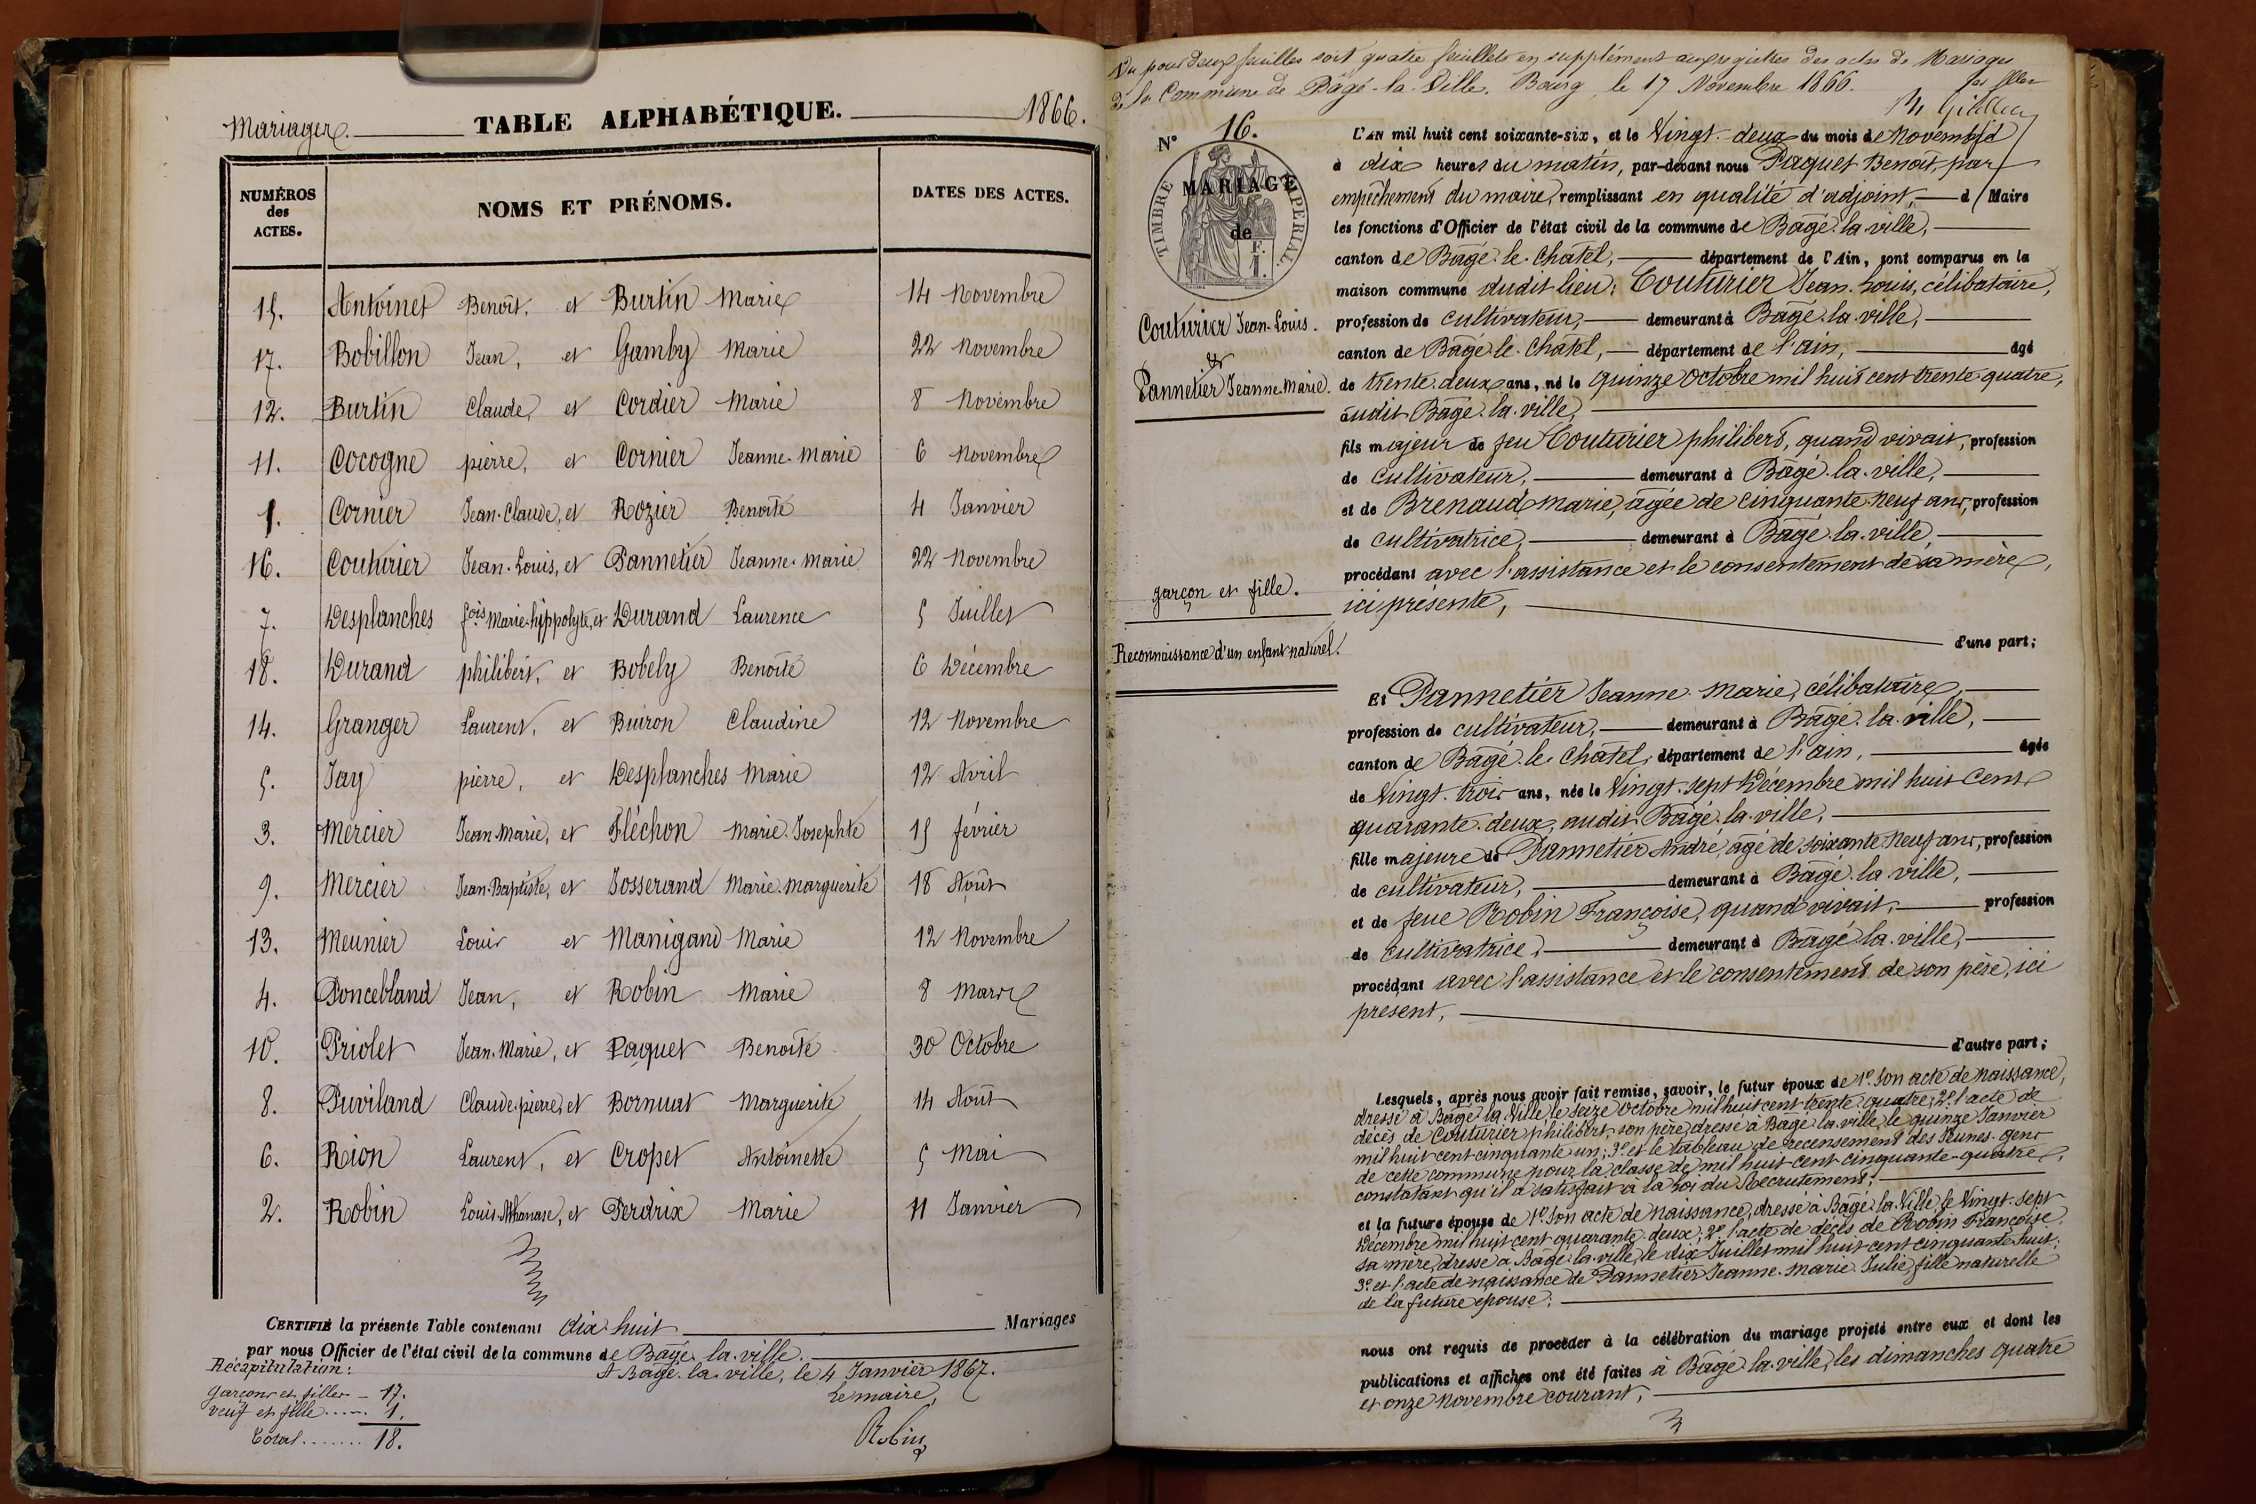 Mariages. TABLE ALPHABÉTIQUE. 1866.
NUMÉROS des ACTES. NOMS ET PRÉNOMS. DATES DES ACTES.
15. Antoinet Benoît, et Burtin Marie 14 Novembre
17. Bobillon Jean, et Gamby Marie 22 Novembre
12. Burtin Claude, et Cordier Marie 8 Novembre
11. Cocogne pierre, et Cornier Jeanne-Marie 6 Novembre
1. Cornier Jean-Claude, et Rozier Benoite 4 Janvier
16. Couturier Jean-Louis, et Pannetier Jeanne-Marie 22 Novembre
7. Desplanches fois Marie-hippolyte, et Durand Laurence 5 Juillet
18. Durand philibert, et Bobely Benoîte 6 Décembre
14. Granger Laurent, et Buiron Claudine 12 Novembre
5. Jay pierre, et Desplanches Marie 12 Avril
3. Mercier Jean-Marie, et Fléchon Marie-Josephte 15 février
9. Mercier Jean-Baptiste, et Josserand Marie-Marguerite 18 Août
13. Meunier Louis et Manigand Marie 12 Novembre
4. Poncebland Jean, et Robin Marie 8 Mars
10. Priolet Jean-Marie, et Paquet Benoîte 30 Octobre
8. Puviland Claude-pierre, et Bornuat Marguerite 14 Août
6. Rion Laurent, et Cropet Antoinette 5 Mai
2. Robin Louis-Athanase, et Perdrix Marie 11 Janvier
CERTIFIÉ la présente Table contenant dix-huit Mariages
par nous Officier de l'état civil de la commune de Bâgé-la-ville.
Récapitulation: A Bâgé-la-ville, le 4 Janvier 1867.
garçons et filles - 17. Le maire,
veuf et fille..... 1.
Total....... 18. Robin
Vu pour deux feuilles soit quatre feuillets en supplément aux registres des actes de Mariages
de la Commune de Bâgé-la-Ville. Bourg, le 17 Novembre 1866.
N° 16.
TIMBRE IMPÉRIAL
MARIAGE
de
Couturier Jean-Louis.
&
Pannetier Jeanne-Marie.
garçon et fille.
Reconnaissance d'un enfant naturel.
L'AN mil huit cent soixante-six, et le Vingt-deux du mois de Novembre
à dix heures du matin, par-devant nous Paquet Benoît, par
empêchement du maire, remplissant en qualité d'adjoint, d Maire
les fonctions d'Officier de l'état civil de la commune de Bâgé-la-ville,
canton de Bâgé-le-Châtel, département de l'Ain, sont comparus en la
maison commune dudit lieu: Couturier Jean-Louis, célibataire,
profession de cultivateur, demeurant à Bâgé-la-ville,
canton de Bâgé-le-Châtel, département de l'ain, âgé
de trente-deux ans, né le quinze Octobre mil huit cent trente quatre,
audit Bâgé-la-ville,
fils majeur de feu Couturier philibert, quand vivait, profession
de cultivateur, demeurant à Bâgé-la-ville,
et de Brenaud Marie, âgée de cinquante-neuf ans, profession
de cultivatrice, demeurant à Bâgé-la-ville,
procédant avec l'assistance et le consentement de sa mère,
ici présente,
d'une part;
Et Pannetier Jeanne-Marie, célibataire,
profession de cultivateur, demeurant à Bâgé-la-ville,
canton de Bâgé-le-Châtel, département de l'ain, âgée
de Vingt-trois ans, née le Vingt-sept Décembre mil huit cent
quarante-deux, audit Bâgé-la-ville,
fille majeure de Pannetier André, âgé de soixante neuf ans, profession
de cultivateur, demeurant à Bâgé-la-ville,
et de feue Robin Françoise, quand vivait, profession
de cultivatrice, demeurant à Bâgé-la-ville,
procédant avec l'assistance et le consentement de son père, ici
présent,
d'autre part;
Lesquels, après nous avoir fait remise, savoir, le futur époux de 1° son acte de naissance,
dressé à Bâgé-la-Ville le seize Octobre mil huit cent trente-quatre; 2° l'acte de
décès de Couturier philibert, son père, dressé à Bâgé-la-ville, le quinze Janvier
mil huit cent cinquante un; 3° et le tableau de recensement des Jeunes-gens
de cette commune pour la classe de mil huit cent cinquante-quatre,
constatant qu'il a satisfait à la Loi du Recrutement;
et la future épouse de 1° son acte de naissance, dressé à Bâgé-la-Ville, le Vingt-sept
Décembre mil huit cent quarante-deux; 2° l'acte de décès de Robin Françoise,
sa mère, dressé à Bâgé-la-ville, le dix Juillet mil huit cent cinquante huit;
3° et l'acte de naissance de Pannetier Jeanne-Marie-Julie, fille naturelle
de la future épouse;
nous ont requis de procéder à la célébration du mariage projeté entre eux et dont les
publications et affiches ont été faites à Bâgé-la-ville, les dimanches quatre
et onze Novembre courant,